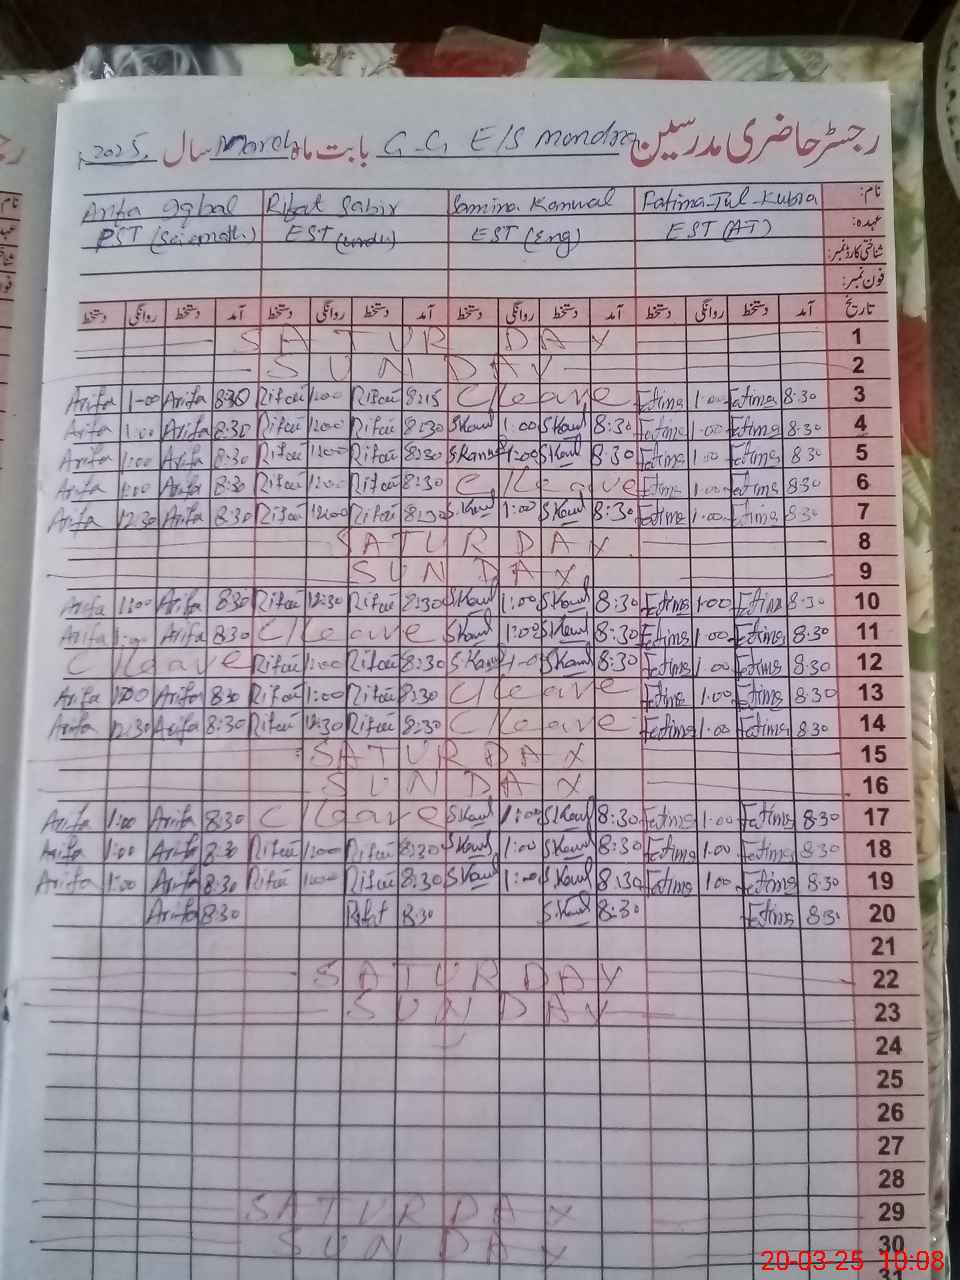 رجسٹر حاضری مدرسین G.G E/S Mondra بابت ماہ March سال 2025ء
نام: Fatima-Tul-Kubra Samina Kanwal Rifat Sabir Arifa Iqbal
عہدہ: EST (AT) EST (Eng) EST (Urdu) PST (Sci-math.)
شناختی کارڈ نمبر:
فون نمبر:
تاریخ آمد دستخط روانگی دستخط آمد دستخط روانگی دستخط آمد دستخط روانگی دستخط آمد دستخط روانگی دستخط
SATURDAY 1
SUNDAY 2
Arifa 1-00 Arifa 8:30 Rifat 12:00 Rifat 8:15 C/leave Fatima 1.00 Fatima 8.30 3
Arifa 1:00 Arifa 8:30 Rifat 12:00 Rifat 8:30 S.Kanwl 1:00 S.Kanwl 8:30 Fatima 1.00 Fatima 8.30 4
Arifa 1:00 Arifa 8:30 Rifat 12:00 Rifat 8:30 S.Kanwl 1:00 S.Kanwl 8:30 Fatima 1.00 Fatima 8.30 5
Arifa 1:00 Arifa 8:30 Rifat Rifat 8:30 C/leave Fatima 1.00 Fatima 8.30 6
Arifa 12:30 Arifa 8:30 Rifat 12:00 Rifat 8:30 S.Kanwl 1:00 S.Kanwl 8:30 Fatima 1.00 Fatima 8.30 7
SATURDAY 8
SUNDAY 9
Arifa 1:00 Arifa 8:30 Rifat 12:30 Rifat 8:30 S.Kanwl 1:00 S.Kanwl 8:30 Fatima 1:00 Fatima 8.30 10
Arifa 1:00 Arifa 8:30 C/leave S.Kanwl 1:00 S.Kanwl 8:30 Fatima 1.00 Fatima 8.30 11
C/leave Rifat 1:00 Rifat 8:30 S.Kanwl 1-00 S.Kanwl 8:30 Fatima 1.00 Fatima 8.30 12
Arifa Arifa 8:30 Rifat 1:00 Rifat 8:30 C/leave Fatima 1.00 Fatima 8.30 13
Arifa 12:30 Arifa 8:30 Rifat 12:30 Rifat 8:30 C/leave Fatima 1.00 Fatima 8.30 14
SATURDAY 15
SUNDAY 16
Arifa 1:00 Arifa 8:30 C/leave S.Kanwl 1:00 S.Kanwl 8:30 Fatima 1.00 Fatima 8.30 17
Arifa 1:00 Arifa 8:30 Rifat Rifat 8:30 S.Kanwl 1:00 S.Kanwl 8:30 Fatima 1.00 Fatima 8.30 18
Arifa 1:00 Arifa 8:30 Rifat Rifat 8:30 S.Kanwl 1:00 S.Kanwl 8:30 Fatima 1.00 Fatima 8.30 19
Arifa 8:30 Rifat 8.30 S.Kanwl 8:30 Fatima 8.30 20
21
SATURDAY 22
SUNDAY 23
24
25
26
27
28
SATURDAY 29
SUNDAY 30
31
20-03-25 10:08